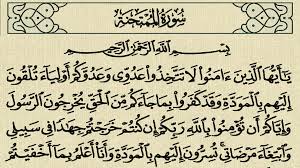 سُورَةُ الْمُمْتَحِنَةِ
بِسْمِ اللَّهِ الرَّحْمَٰنِ الرَّحِيمِ
يَٰٓأَيُّهَا ٱلَّذِينَ ءَامَنُوا۟ لَا تَتَّخِذُوا۟ عَدُوِّى وَعَدُوَّكُمْ أَوْلِيَآءَ تُلْقُونَ
إِلَيْهِم بِٱلْمَوَدَّةِ وَقَدْ كَفَرُوا۟ بِمَا جَآءَكُم مِّنَ ٱلْحَقِّ يُخْرِجُونَ ٱلرَّسُولَ
وَإِيَّاكُمْ أَن تُؤْمِنُوا۟ بِٱللَّهِ رَبِّكُمْ إِن كُنتُمْ خَرَجْتُمْ جِهَٰدًا فِى سَبِيلِى
وَٱبْتِغَآءَ مَرْضَاتِى تُسِرُّونَ إِلَيْهِم بِٱلْمَوَدَّةِ وَأَنَا۠ أَعْلَمُ بِمَآ أَخْفَيْتُمْ